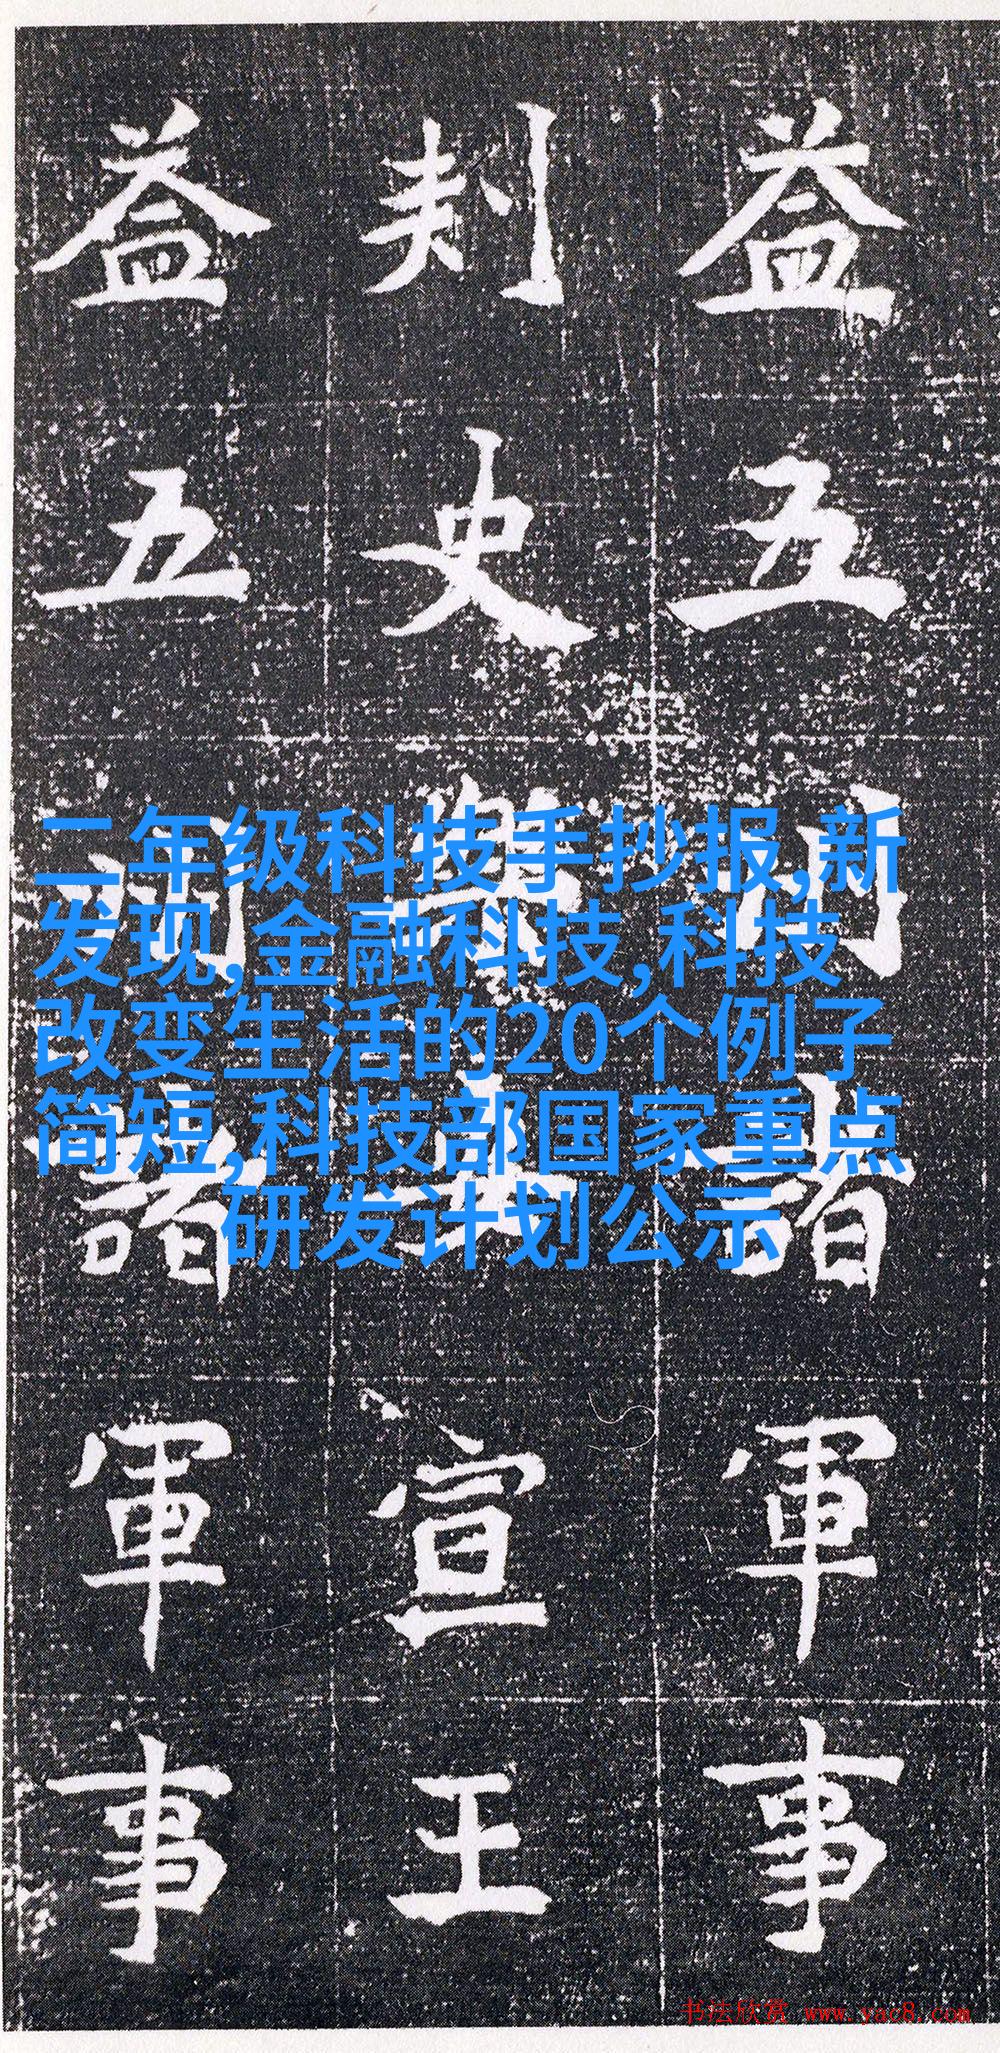 益五州諸軍事
刾史與宣王
益五州諸軍事
二年级科技手抄报,新
发现,金融科技,科技
改变生活的20个例子
简短,科技部国家重点
研发计划公示
书法欣赏 www.yac8.com